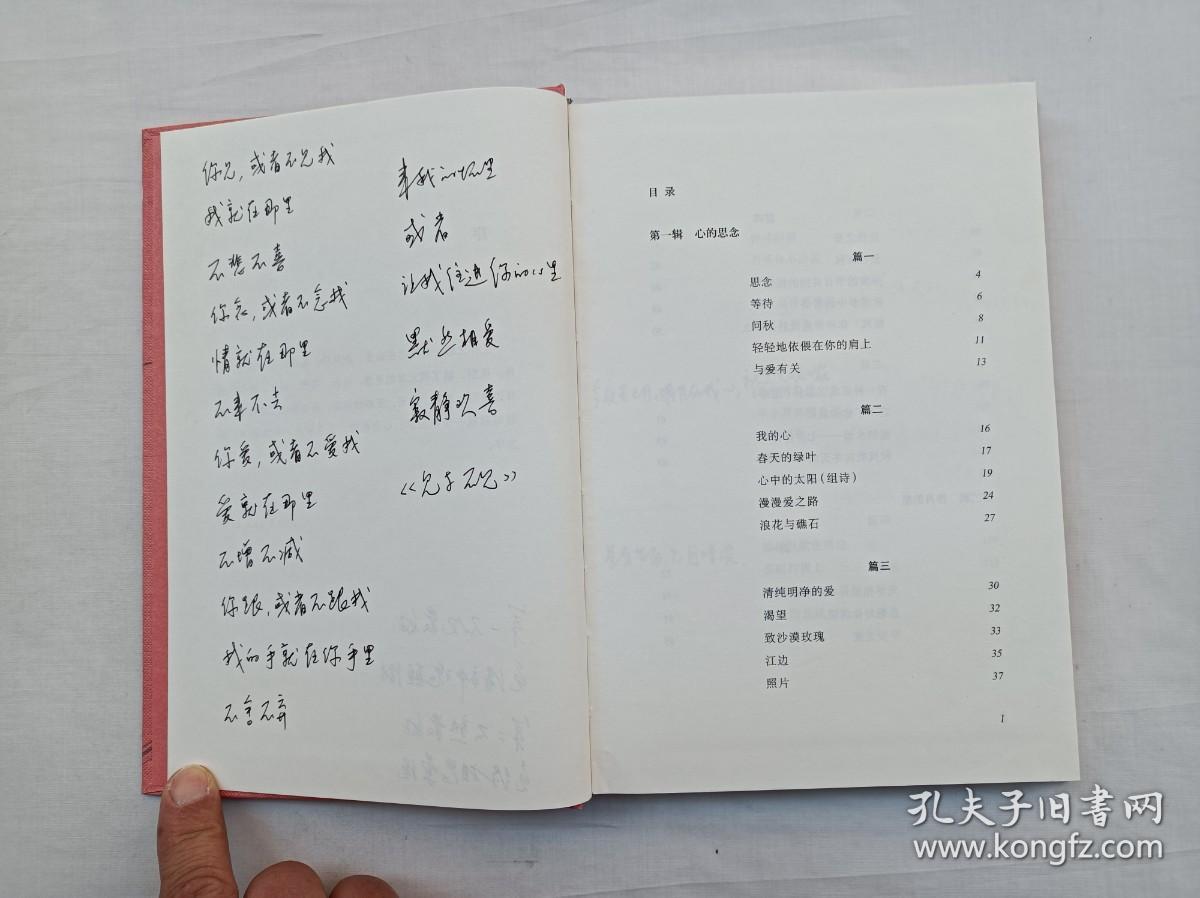 你见，或者不见我
我就在那里
不悲不喜
你念，或者不念我
情就在那里
不来不去
你爱，或者不爱我
爱就在那里
不增不减
你跟，或者不跟我
我的手就在你手里
不舍不弃
来我的怀里
或者
让我住进你的心里
默然相爱
寂静欢喜
《见与不见》
目录
第一辑 心的思念
篇一
思念 4
等待 6
问秋 8
轻轻地依偎在你的肩上 11
与爱有关 13
篇二
我的心 16
春天的绿叶 17
心中的太阳（组诗） 19
漫漫爱之路 24
浪花与礁石 27
篇三
清纯明净的爱 30
渴望 32
致沙漠玫瑰 33
江边 35
照片 37
1
孔夫子旧书网
www.kongfz.com